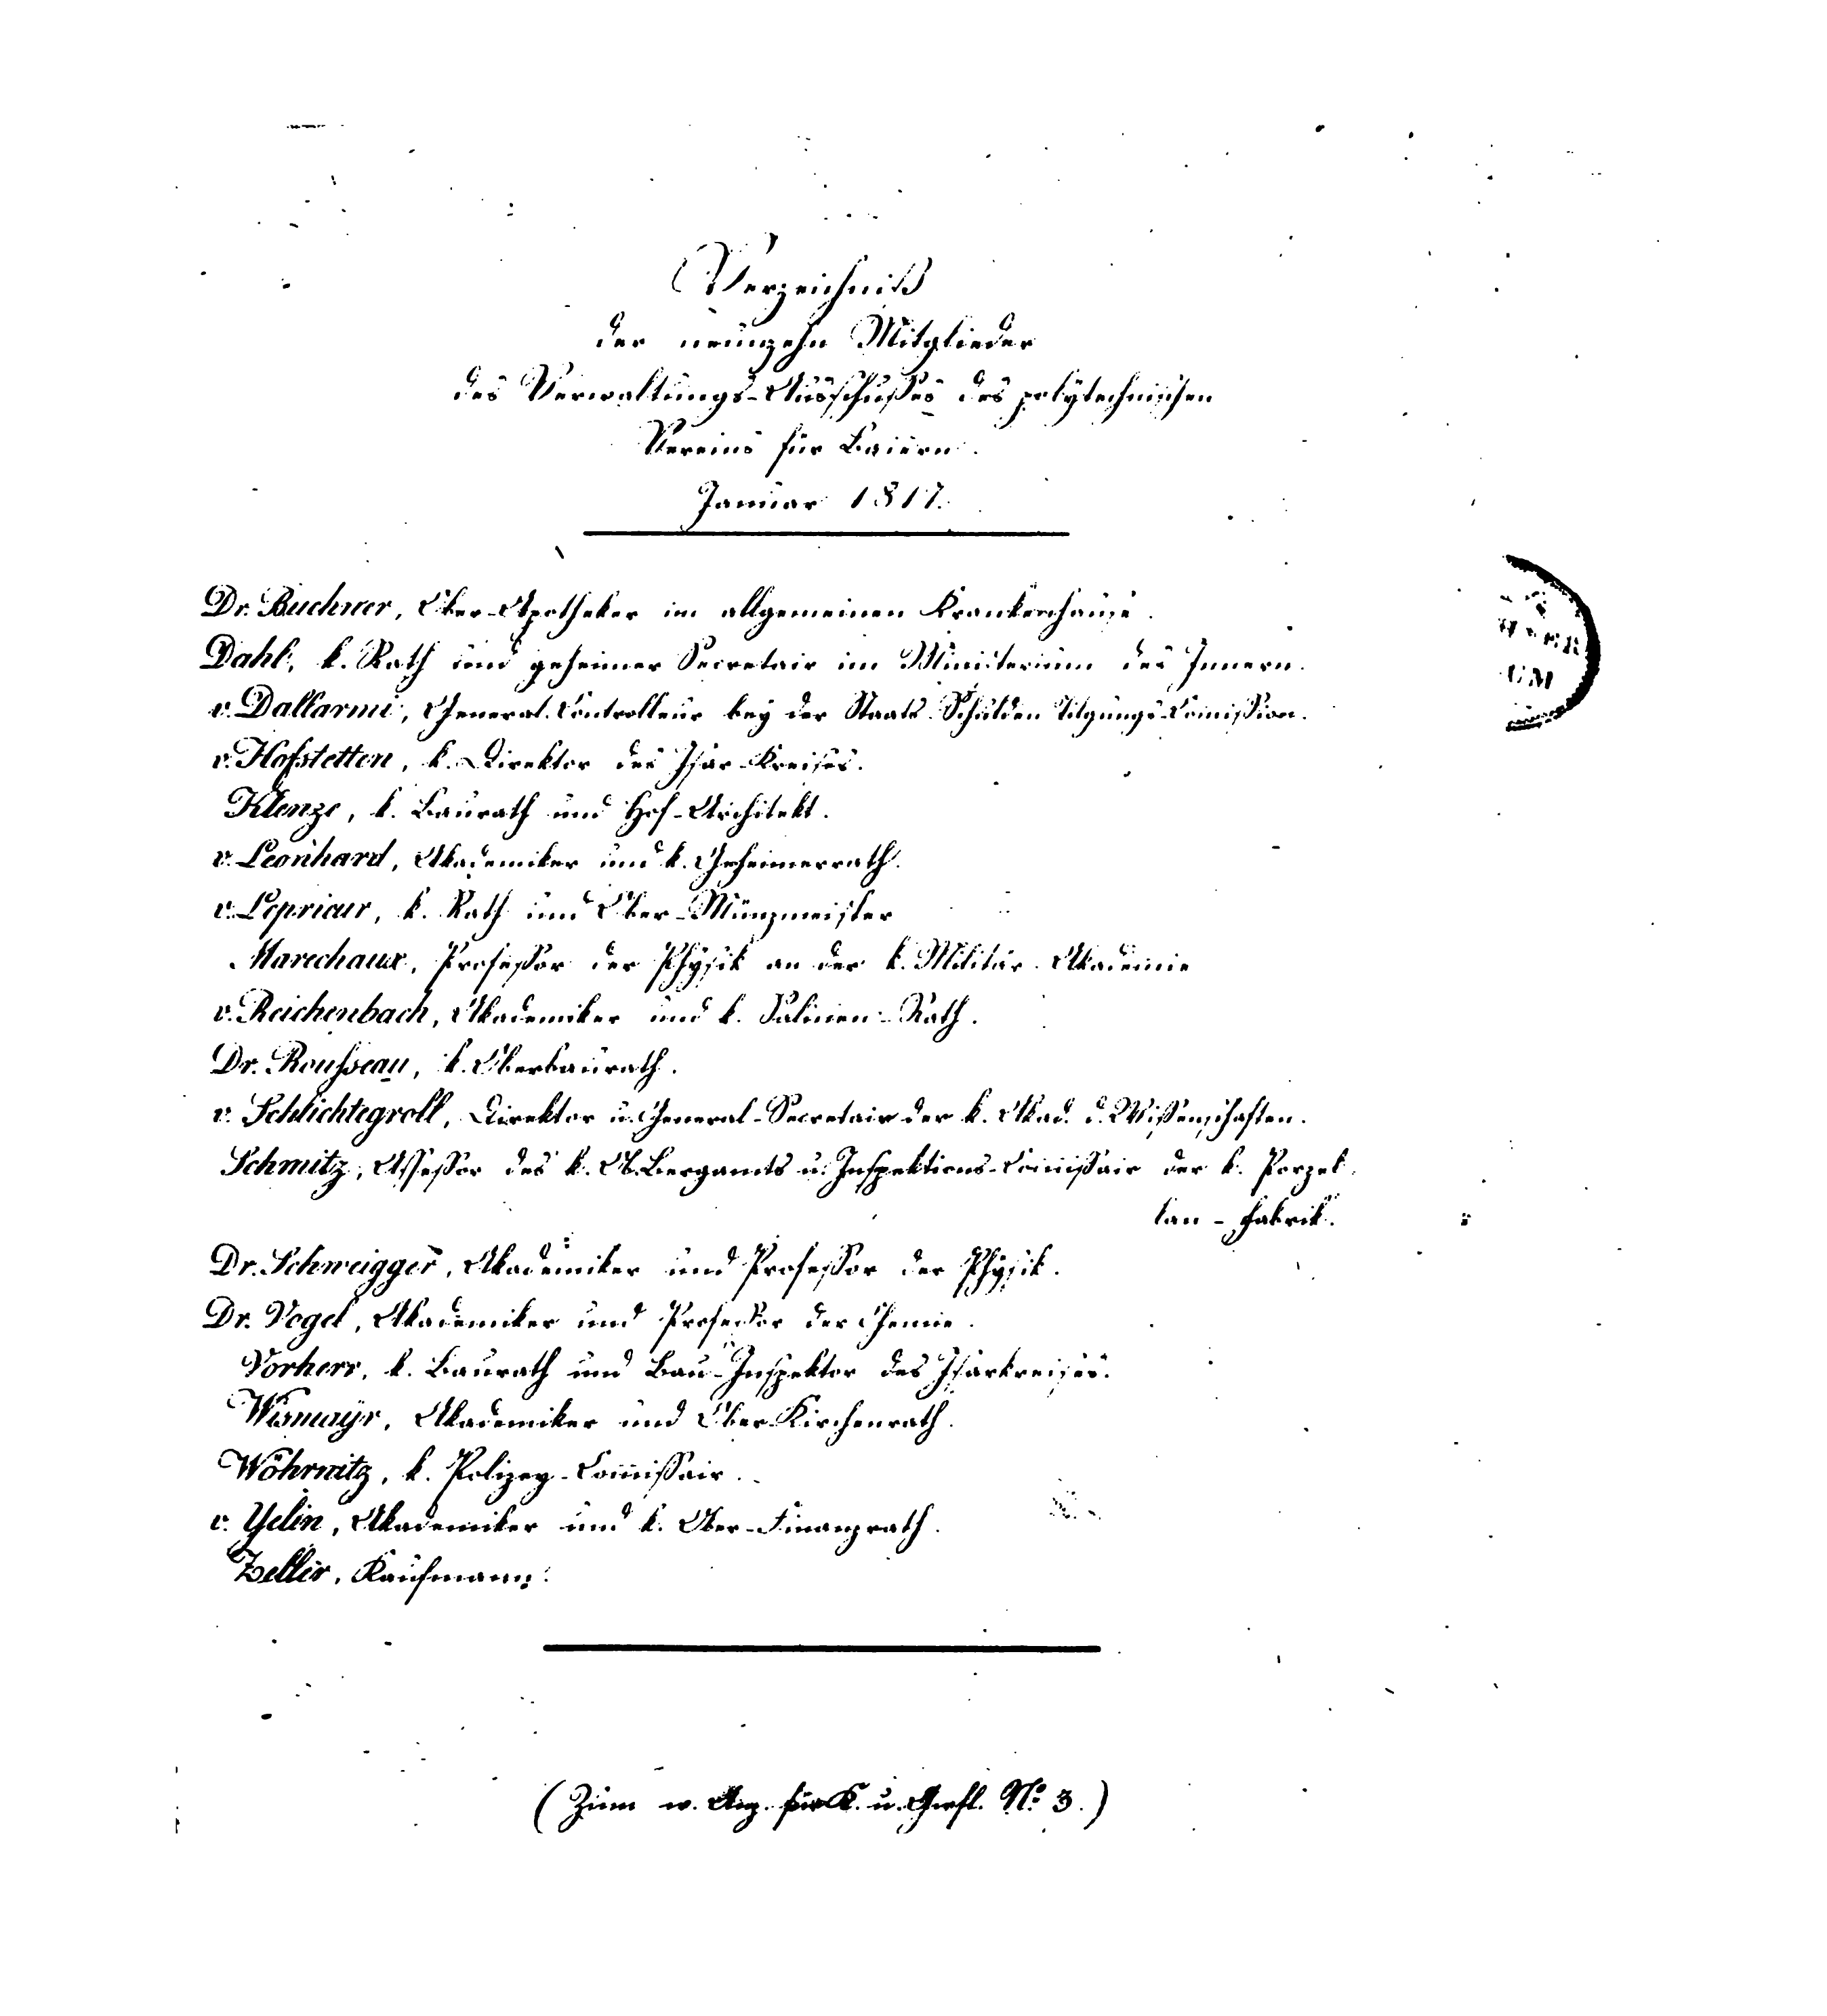 Verzeichniß
der neunzehn Mitglieder
des Verwaltungs-Ausschußes des polytechnischen
Vereins für Baiern.
Januar 1817.
Dr. Buchner, Ober-Apotheker im allgemeinen Krankenhause.
Dahl, k. Rath und geheimer Secretair im Ministerium des Innern.
v. Dallarmi, General-Controlleur bey der Staats-Schulden Tilgungs-Comission.
v. Hofstetten, k. Direktor des Isar-Kreises.
Klenze, k. Baurath und Hof-Architekt.
v. Leonhard, Akademiker und k. Geheimerrath.
v. Leprieur, k. Rath und Ober-Münzmeister
Marechaux, Professor der Physik an der k. Militär-Akademie
v. Reichenbach, Akademiker und k. Salinen-Rath.
Dr. Rousseau, k. Oberbaurath.
v. Schlichtegroll, Direktor u. General-Secretair der k. Akad. d. Wißenschaften.
Schmitz, Assessor des k. Ob. Bergamts u. Inspektions-Comissair der k. Porzel-
lan-Fabrik.
Dr. Schweigger, Akademiker und Professor der Physik.
Dr. Vogel, Akademiker und Professor der Chemie.
Vorherr, k. Baurath und Bau-Inspektor des Isarkreises.
Wismayr, Akademiker und Ober-Kirchenrath.
Wöhrnitz, k. Polizey-Comissair.
v. Yelin, Akademiker und k. Ober-Finanzrath.
Zeller, Kaufmann.
(Zum w. Anz. für K. u. Gwfl. No. 3.)